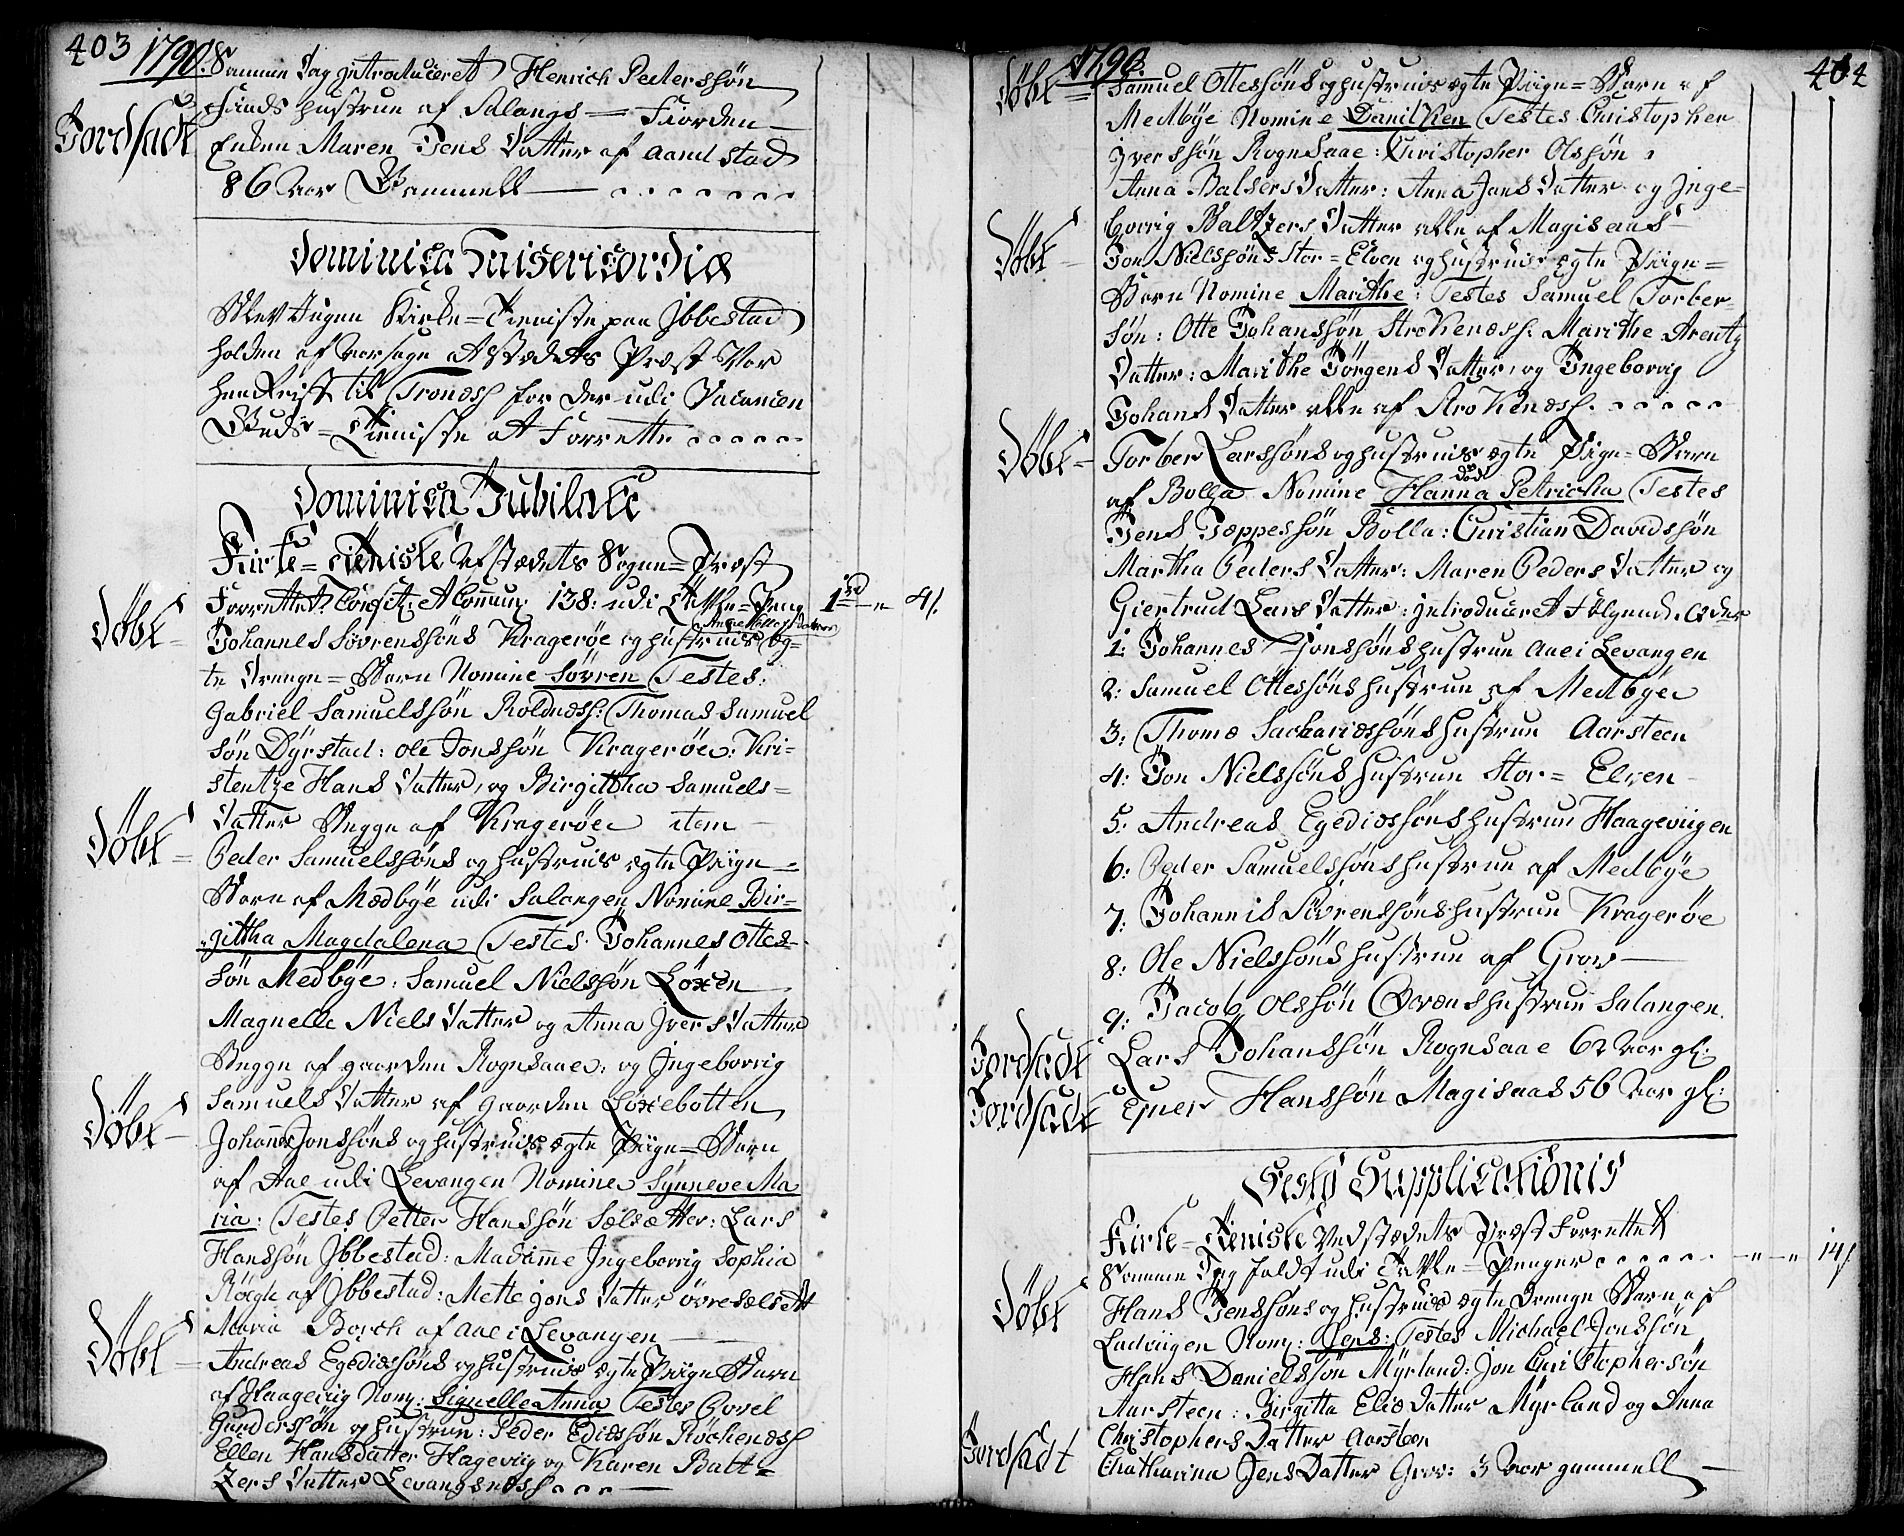 403 1790.
Samme Dag introduceret Henrich Pedersøn
hustrue af Salangs = Fiorden
Jordfæstet
Enken Maren Jens Datter af aamstad
86 Aar Gammell
Dominica Misericordiæ
Blev Ingen Kirke = Tieniste paa Ibbestad
holden af aarsage at stædets Præst Var
hen Reist til Tronæs for der udi Vacancen
Guds = Tieniste at Forrette
Dominica Jubilate
Kirke = Tieniste Af stædets Sogne = Præst
Forrettet. Confit: et Commun: 138: udi Tafle = Peng 1 rd „ 4 s.
Døbt = Johannes Sövrenssöns Kragerøe og hustrues Eg=
te Drenge = Barn Nomine Sövren Testes:
Gabriel Samuelssön Roldnæs: Thomas Samuel
sön Dÿrstad: Ole Jonssön Kragerøe: Kri=
stentze Hans Datter, og Birgittha Samuels=
Datter Begge af Kragerøe item
Døbt = Peder Samuelssöns og hustrues egte Piige =
Barn af Medbÿe udi Salangen Nomine Bir=
gittha Magdalena Testes Johannes Ottes=
sön Medbÿe: Samuel Nielssön Löxen
Magnelle Niels Datter og Anna Ivers Datter
Begge af gaarden Rognsaae: og Ingeborrig
Samuels Datter af gaarden Löxebotten
Døbt = Johannes Jonssöns og hustrues egte Piige = Barn
af Aae udi Levangen Nomine Synneve Ma
ria: Testes Petter Hanssön Sælsætter: Lars
Hanssön Ibbestad: Madamme Ingeborrig Sophia
af Ibbestad: Mette Jons Datter övresælset
Maria Borch af aae i Levangen
Døbt = Andreas Egediessöns og hustrues egte Piige Barn
af Haagevig Nom: Signelle Anna Testes Povel
Gundersøn og hustrue: Peder Ediessön Röchenæs
Ellen Hans Datter Hagevig og Karen Balt=
zers Datter Levangsnæs
1790. 404
Døbt = Samuel Ottessöns og hustrues egte Piige = Barn af
Medbÿe Nomine Danilken Testes Christopher
Iverssön Rognsaae: Christopher Olssön
Anna Balsers Datter: Anna Jans Datter og Inge=
borrig Baltzers Datter alle af Magisaas
Døbt = Jon Nielssöns Stor = Elven og hustrues egte Piige =
Barn Nomine Marithe: Testes Samuel Torber=
sön: Otte Johanssön Strokenæs: Marithe Arentz
Datter: Marithe Jörgens Datter, og Ingeborrig
Johans Datter alle af Strokenæs.
Døbt = Torber Larssöns og hustrues egte Piige = Barn
död
af Bolla Nomine Hanna Petricka Testes
Jens Jæppessön Bolla: Christian Davidssön
Martha Peders Datter: Maren Peders Datter og
Giertrud Lars Datter: introduceret Følgende
1: Johannes Jonssöns hustrue aae i Levangen
2: Samuel Ottessöns hustrue af Medbÿe
3: Thomæ Sachariæssöns hustrue Aarsteen
4: Jon Nielssöns hustrue Stor = Elven
5: Andreas Egediæssöns hustrue Haageviigen
6: Peder Samuelssöns hustrue af Medbÿe
7: Johannis Sövrenssöns hustrue Kragerøe
8: Ole Nielssöns hustrue af Grov
9: Jacob Olssön hustrue Salangen.
Jordfædt Lars Johanssön Rognsaae 62 aar gl:
Jordfædt Einer Hanssön Magisaas 56 Aar gl:
Festo Supplicationis
Kirke = Tieniste Ved stædets Præst Forrettet
Samme Dag faldt udi Tafle = Penger „ — „ 14 s.
Døbt Hans Jenssöns og hustrues egte Drenge Barn af
Ladviigen Nom: Jens: Testes Michael Jonssön
Hans Danielssön Mÿrland: Jon Christophersön
Aarsteen: Birgitta Eliæ Datter Mÿrland og Anna
Christophers Datter Aarsteen
Jordfædt Chatharina Jens Datter Grov: 3 Aar gammell